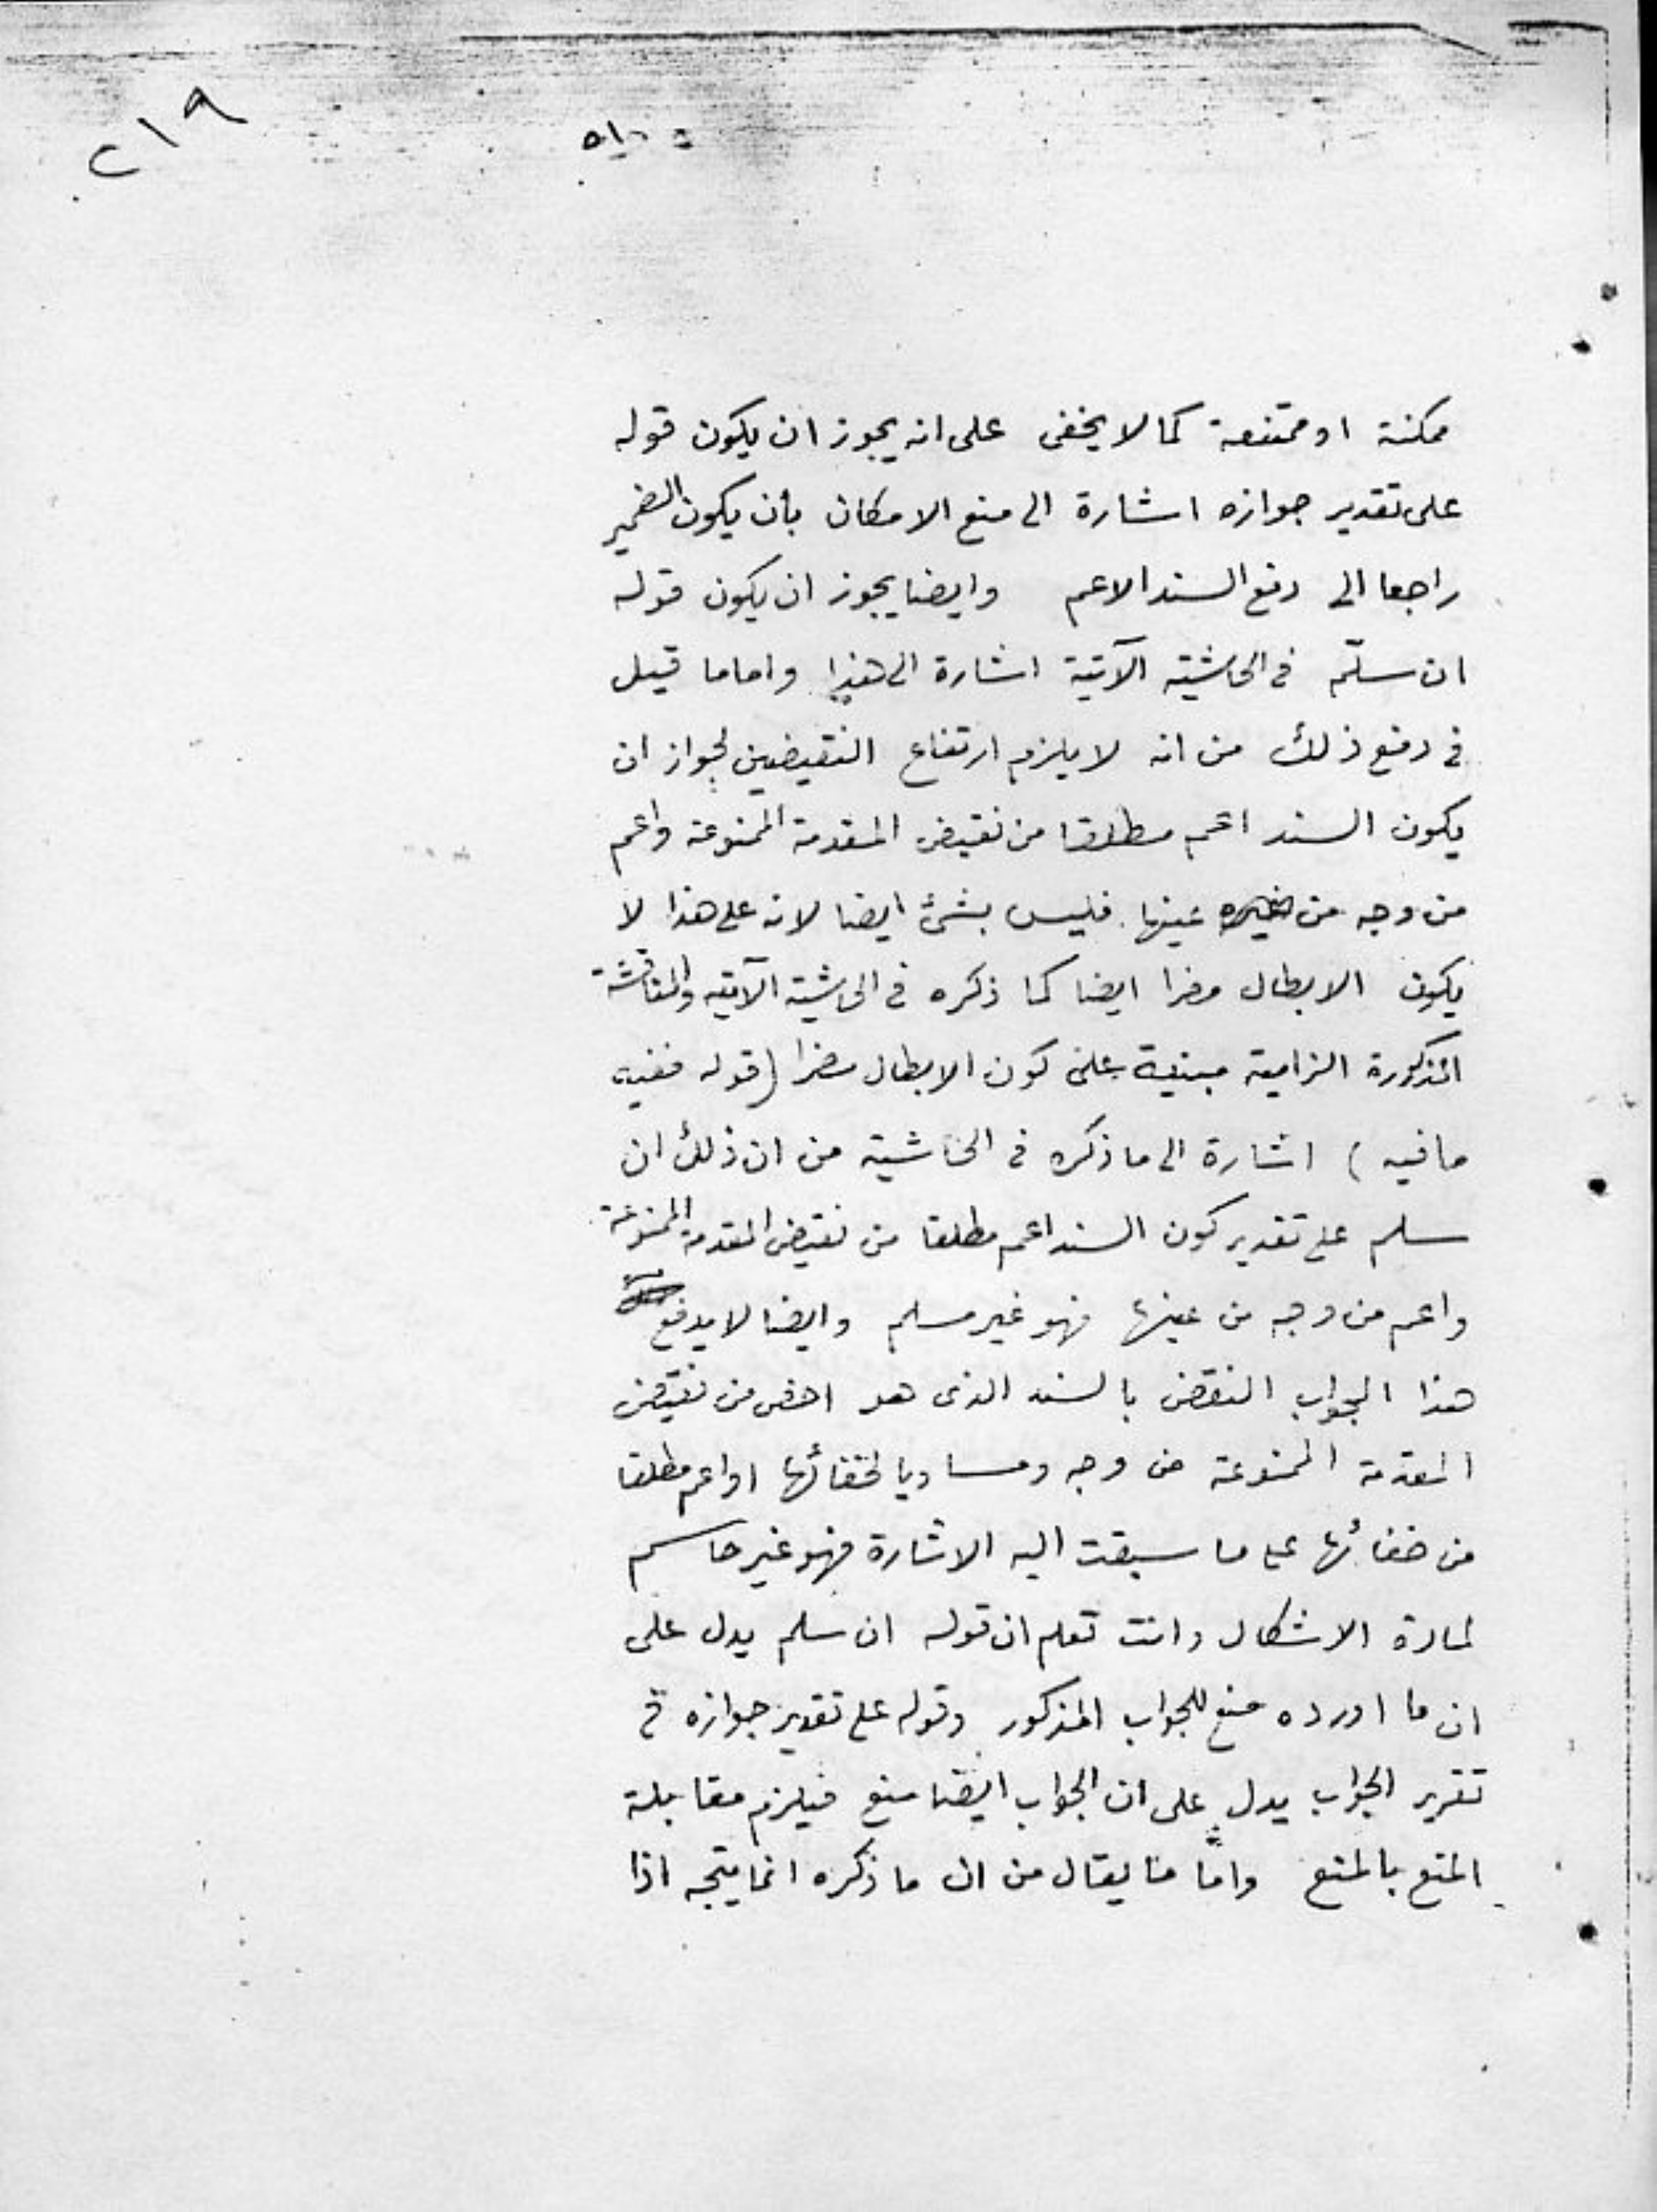 ٢١٩
ممكنة او ممتنعة كما لا يخفى على انه يجوز ان يكون قوله
على تقدير جوازه اشارة الى منع الامكان بأن يكون الضمير
راجعا الى دفع السند الاعم وايضا يجوز ان يكون قوله
ان سلّم فى الحاشية الآتية اشارة الى هذا واما ما قيل
فى دفع ذلك من انه لا يلزم ارتفاع النقيضين لجواز ان
يكون السند اعم مطلقا من نقيض المقدمة الممنوعة واعم
من وجه من عينها فليس بشئ ايضا لانه على هذا لا
يكون الابطال مضرا ايضا كما ذكره فى الحاشية الآتية والمناقشة
المذكورة الزامية مبنية على كون الابطال مضرا (قوله ففيه
ما فيه) اشارة الى ما ذكره فى الحاشية من ان ذلك ان
سلم على تقدير كون السند اعم مطلقا من نقيض المقدمة الممنوعة
واعم من وجه من عينها فهو غير مسلم وايضا لا يدفع
هذا الجواب النقض بالسند الذى هو اخص من نقيض
المقدمة الممنوعة من وجه ومساويا لخفائها او اعم مطلقا
من خفائها على ما سبقت اليه الاشارة فهو غير حاسم
لمادة الاشكال وانت تعلم ان قوله ان سلم يدل على
ان ما اورده منع للجواب المذكور وقوله على تقدير جوازه فى
تقرير الجواب يدل على ان الجواب ايضا منع فيلزم مقابلة
المنع بالمنع وامّا ما يقال من ان ما ذكره انما يتجه اذا